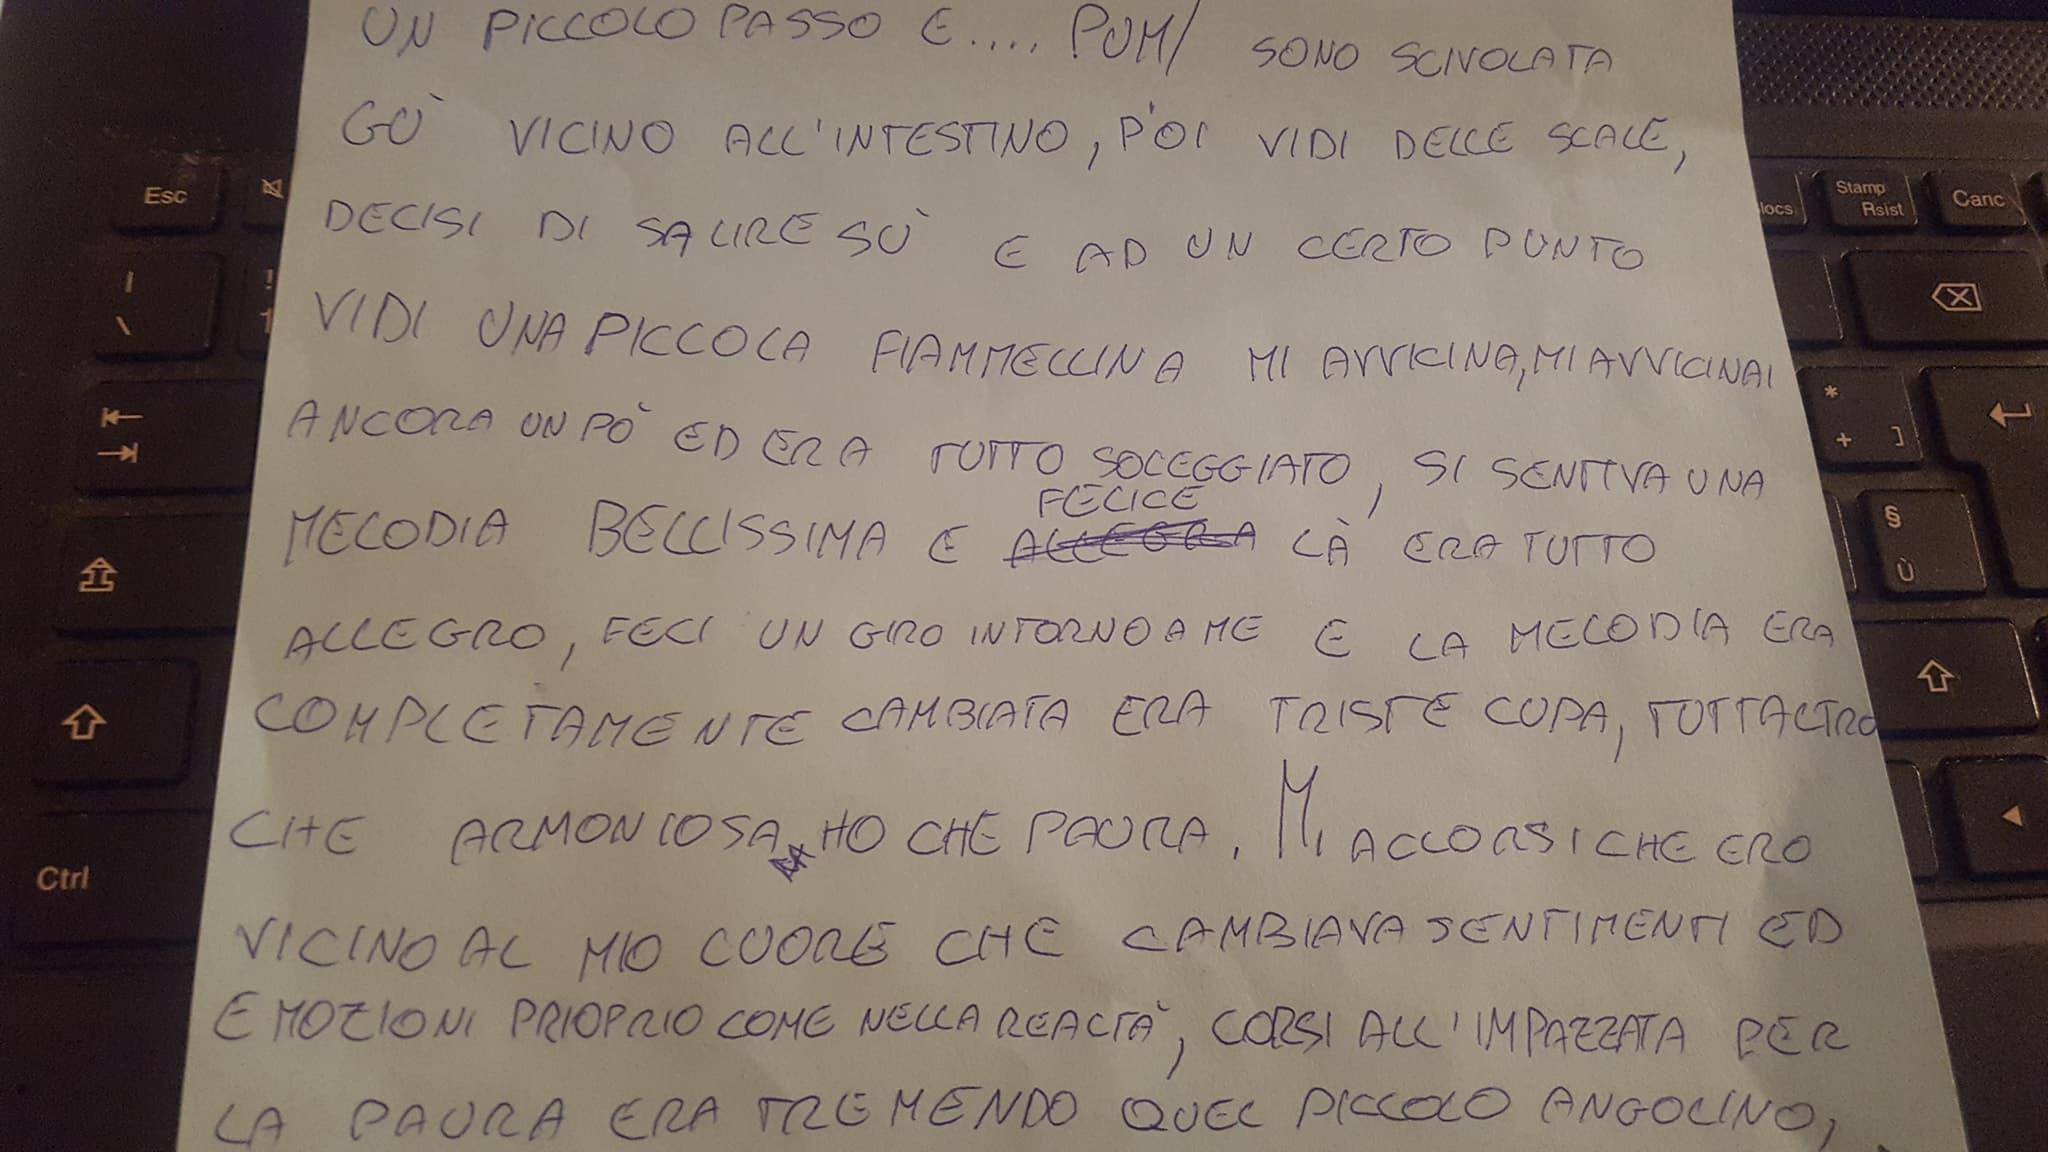 UN PICCOLO PASSO E.... PUM/ SONO SCIVOLATA
GÙ VICINO ALL'INTESTINO, POI VIDI DELLE SCALE,
DECISI DI SALIRE SÙ E AD UN CERTO PUNTO
VIDI UNA PICCOLA FIAMMELLINA MI AVVICINA, MI AVVICINAI
ANCORA UN PÒ ED ERA TUTTO SOLEGGIATO, SI SENTIVA UNA
FELICE
MELODIA BELLISSIMA E ALLEGRA LÀ ERA TUTTO
ALLEGRO, FECI UN GIRO INTORNO A ME E LA MELODIA ERA
COMPLETAMENTE CAMBIATA ERA TRISTE CUPA, TUTTALTRO
CHE ARMONIOSA HO CHE PAURA. MI ACCORSI CHE ERO
VICINO AL MIO CUORE CHE CAMBIAVA SENTIMENTI ED
EMOZIONI PRIOPRIO COME NELLA REALTÀ, CORSI ALL'IMPAZZATA PER
LA PAURA ERA TREMENDO QUEL PICCOLO ANGOLINO,
Esc
locs
Stamp
Rsist
Canc
|
\
!
1
*
+ ]
§
Ù
Ctrl